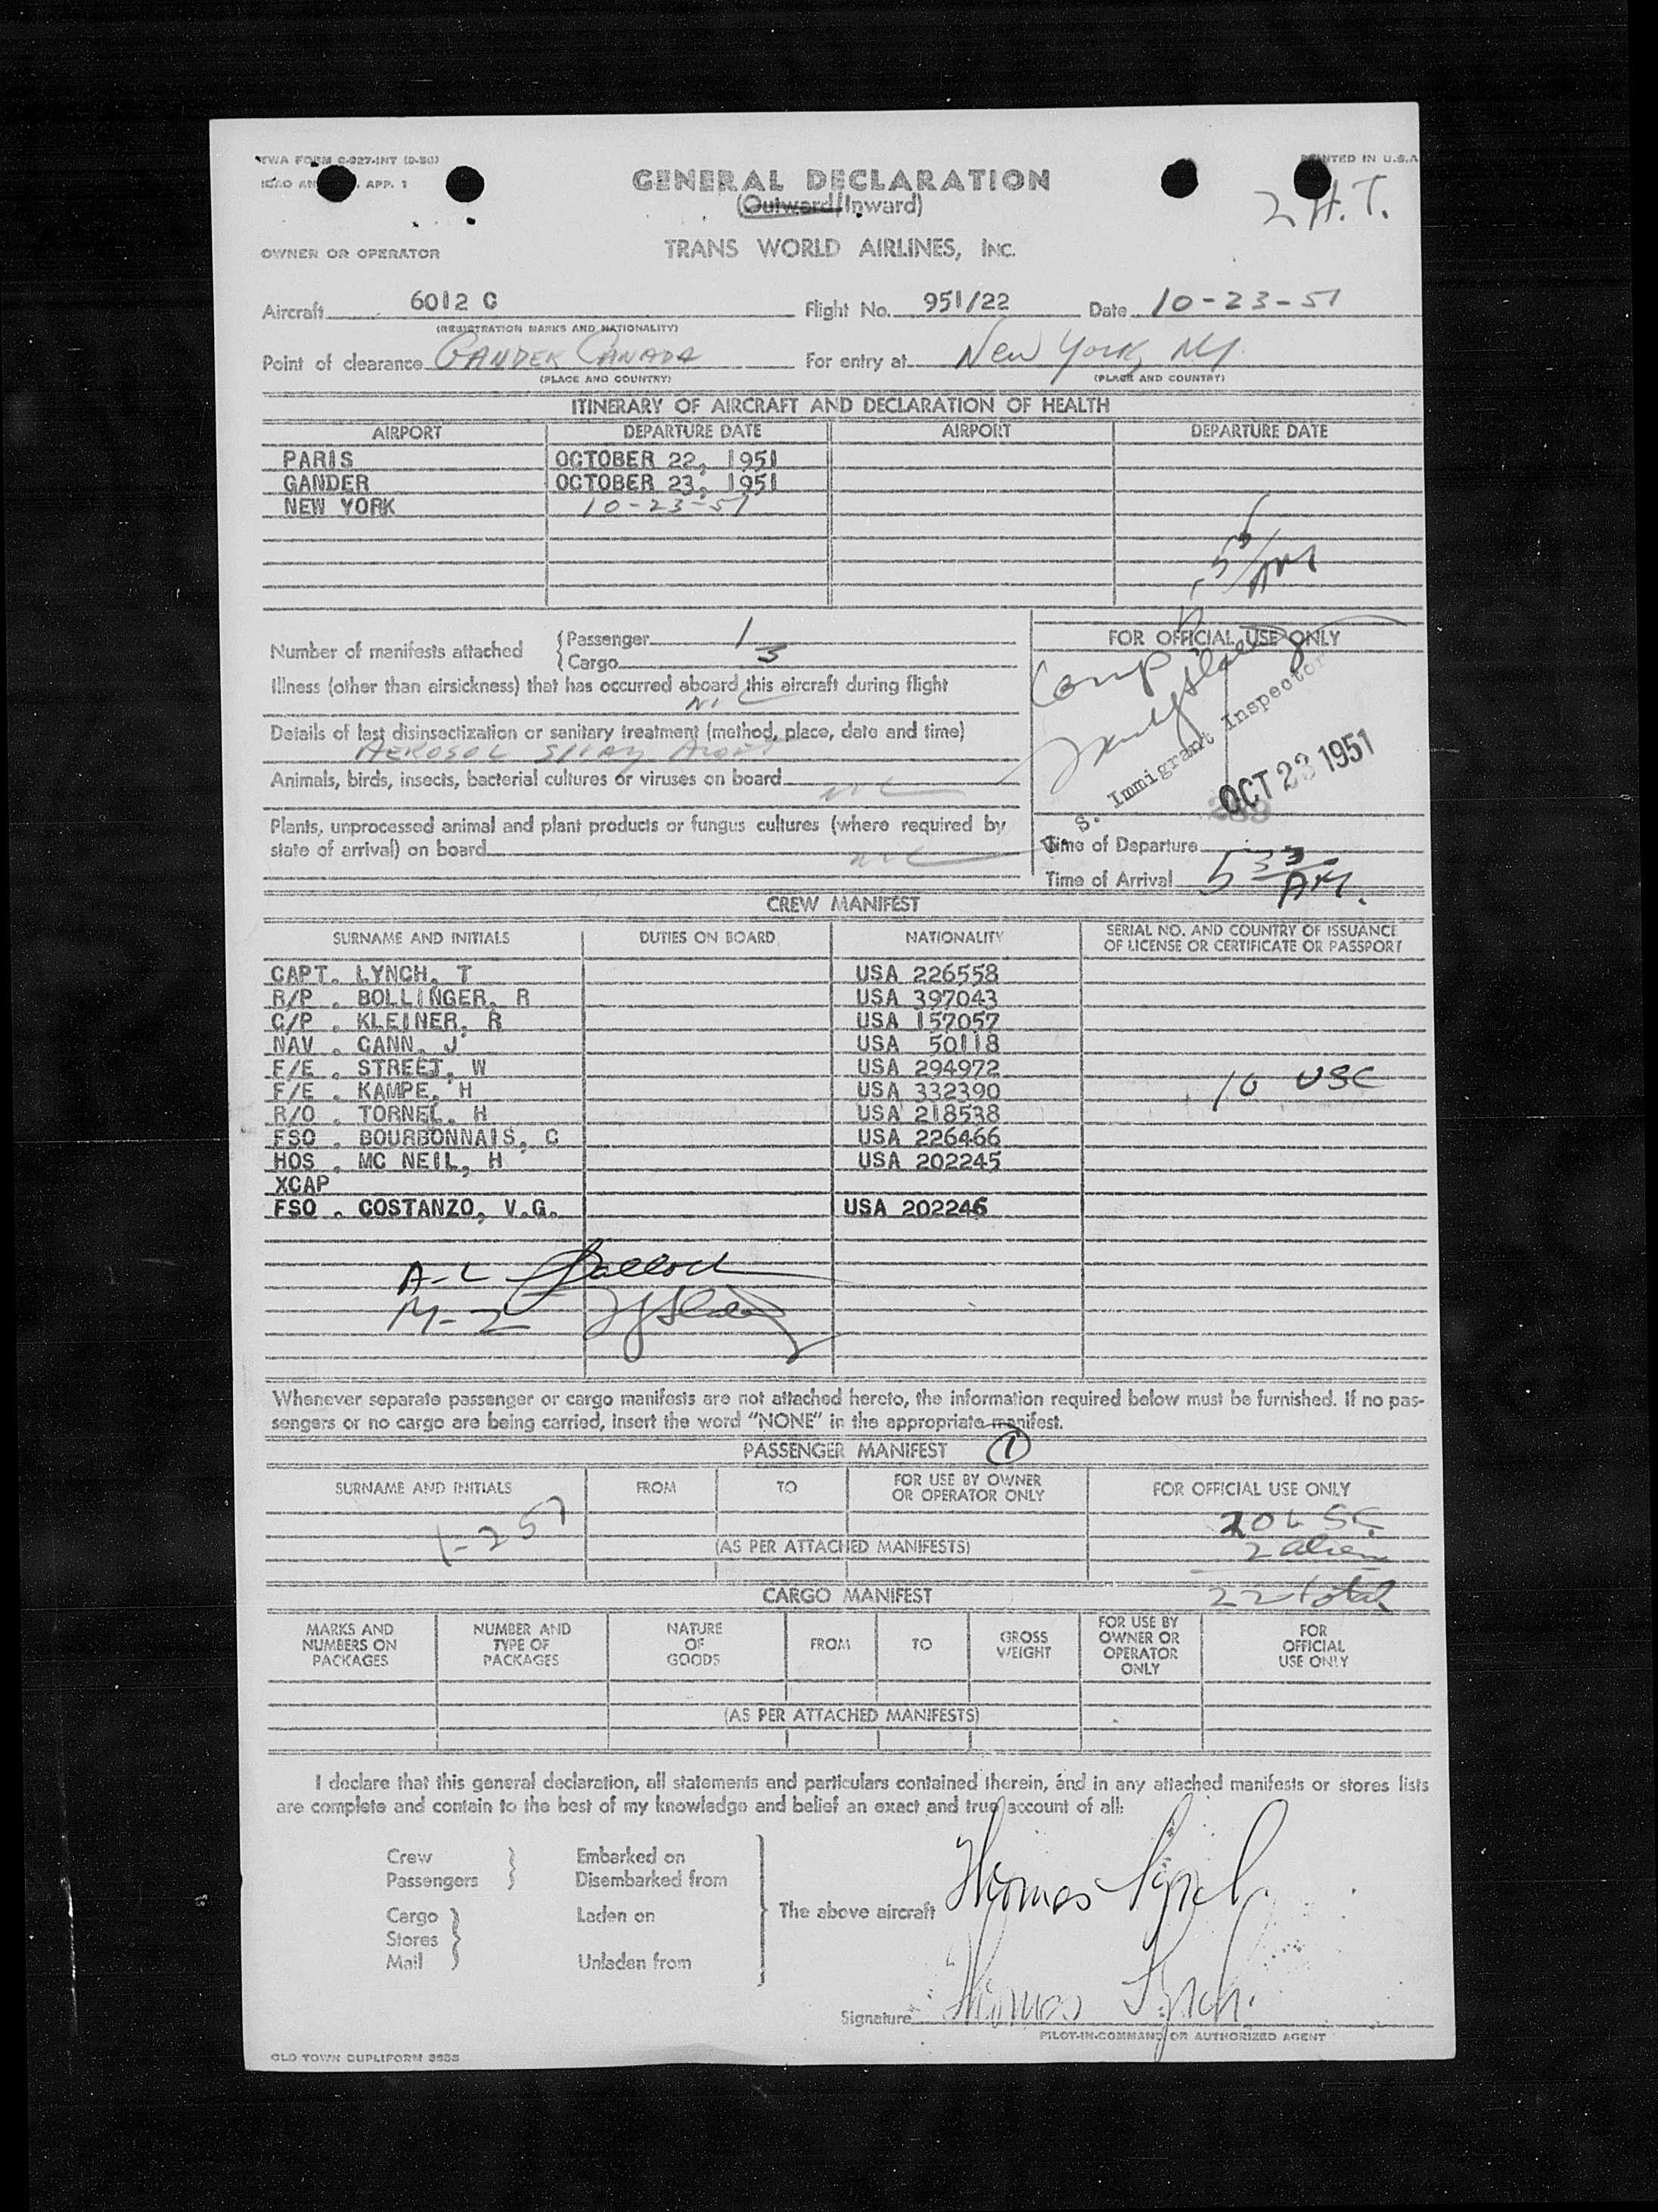 TWA FORM C-927-INT (9-50)
PRINTED IN U.S.A
ICAO AN APP. 1
GENERAL DECLARATION
(Outward/Inward)
2 H.T.
OWNER OR OPERATOR
TRANS WORLD AIRLINES, INC.
Aircraft 6012 C Flight No. 951/22 Date 10-23-51
(REGISTRATION MARKS AND NATIONALITY)
Point of clearance GANDER CANADA For entry at New York, NY
(PLACE AND COUNTRY) (PLACE AND COUNTRY)
ITINERARY OF AIRCRAFT AND DECLARATION OF HEALTH
AIRPORT DEPARTURE DATE AIRPORT DEPARTURE DATE
PARIS OCTOBER 22, 1951
GANDER OCTOBER 23, 1951
NEW YORK 10-23-51
Number of manifests attached { Passenger 1
{ Cargo 3
FOR OFFICIAL USE ONLY
Illness (other than airsickness) that has occurred aboard this aircraft during flight
NIL
Details of last disinsectization or sanitary treatment (method, place, date and time)
AEROSOL SPRAY
Animals, birds, insects, bacterial cultures or viruses on board NIL
Plants, unprocessed animal and plant products or fungus cultures (where required by
state of arrival) on board NIL
Comp
S. Immigrant Inspector
OCT 23 1951
Time of Departure
Time of Arrival 5 33 AM.
CREW MANIFEST
SURNAME AND INITIALS DUTIES ON BOARD NATIONALITY SERIAL NO. AND COUNTRY OF ISSUANCE
OF LICENSE OR CERTIFICATE OR PASSPORT
CAPT. LYNCH, T USA 226558
R/P . BOLLINGER, R USA 397043
C/P . KLEINER, R USA 157057
NAV . GANN, J USA 50118
F/E . STREET, W USA 294972
F/E . KAMPE, H USA 332390 10 USC
R/O . TORNEL, H USA 218538
FSO . BOURBONNAIS, C USA 226466
HOS . MC NEIL, H USA 202245
XCAP
FSO . COSTANZO, V.G. USA 202246
A-L
M-2
Whenever separate passenger or cargo manifests are not attached hereto, the information required below must be furnished. If no pas-
sengers or no cargo are being carried, insert the word "NONE" in the appropriate manifest.
PASSENGER MANIFEST 1
SURNAME AND INITIALS FROM TO FOR USE BY OWNER
OR OPERATOR ONLY FOR OFFICIAL USE ONLY
20 USC
(AS PER ATTACHED MANIFESTS) 2 alien
CARGO MANIFEST 22 total
MARKS AND
NUMBERS ON
PACKAGES
NUMBER AND
TYPE OF
PACKAGES
NATURE
OF
GOODS
FROM
TO
GROSS
WEIGHT
FOR USE BY
OWNER OR
OPERATOR
ONLY
FOR
OFFICIAL
USE ONLY
(AS PER ATTACHED MANIFESTS)
I declare that this general declaration, all statements and particulars contained therein, and in any attached manifests or stores lists
are complete and contain to the best of my knowledge and belief an exact and true account of all:
Crew Embarked on
Passengers Disembarked from
The above aircraft Thomas Lynch
Cargo Laden on
Stores
Mail Unladen from
Signature Thomas Lynch
PILOT-IN-COMMAND OR AUTHORIZED AGENT
OLD TOWN DUPLIFORM 3955